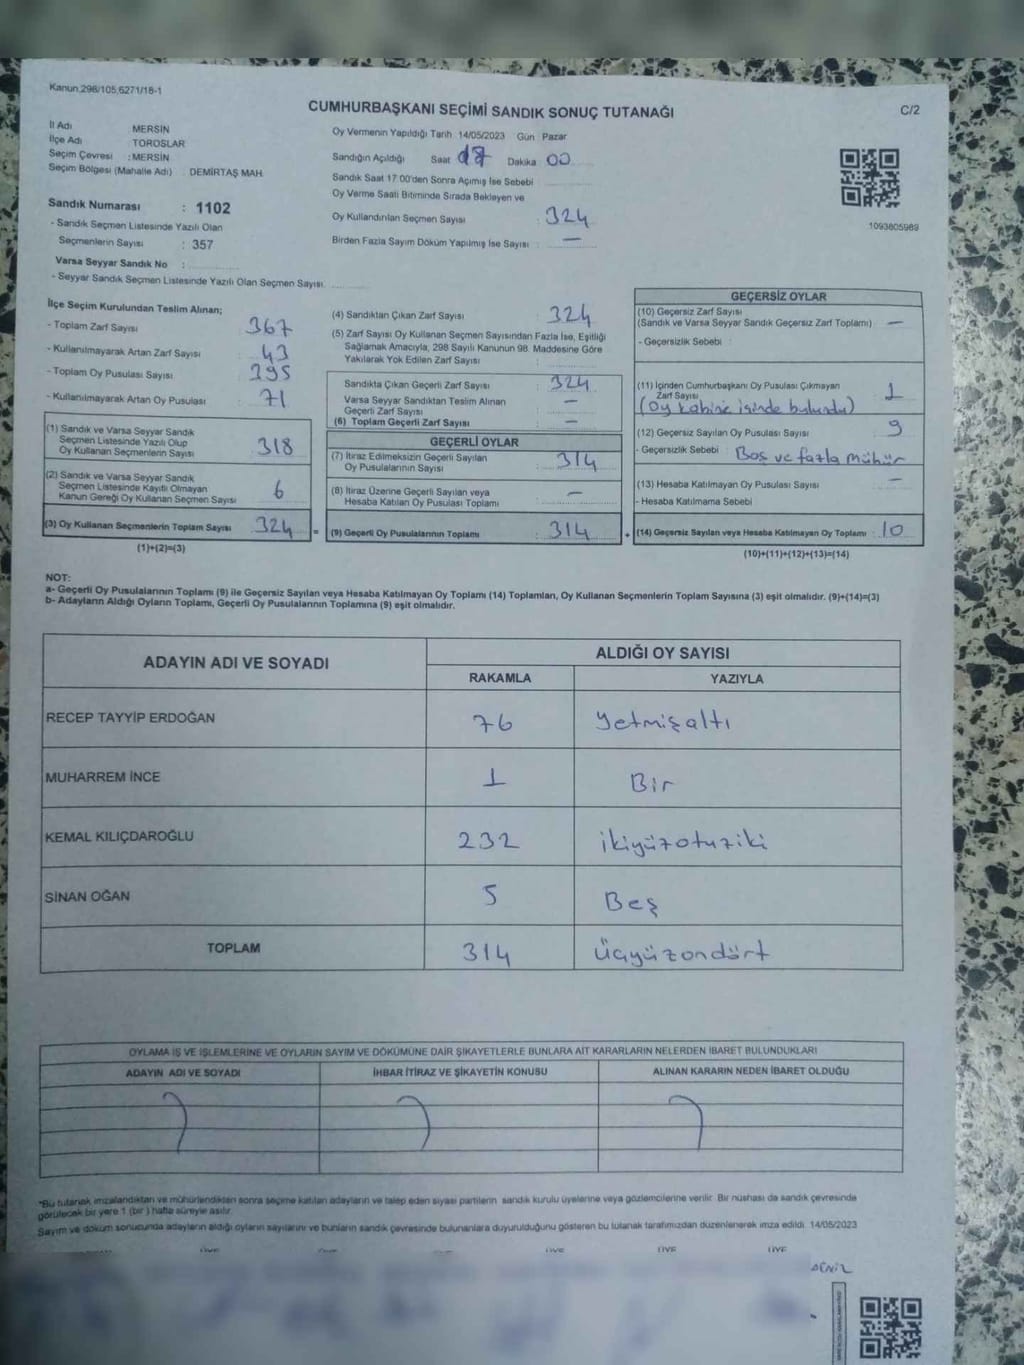 Kanun,298/105,6271/18-1
CUMHURBAŞKANI SEÇİMİ SANDIK SONUÇ TUTANAĞI
C/2
İl Adı MERSİN
İlçe Adı TOROSLAR
Seçim Çevresi : MERSİN
Seçim Bölgesi (Mahalle Adı) : DEMİRTAŞ MAH.
Oy Vermenin Yapıldığı Tarih 14/05/2023 Gün Pazar
Sandığın Açıldığı Saat 17 Dakika 00
Sandık Saat 17:00'den Sonra Açılmış İse Sebebi
Oy Verme Saati Bitiminde Sırada Bekleyen ve
Oy Kullandırılan Seçmen Sayısı : 324
Birden Fazla Sayım Döküm Yapılmış İse Sayısı : —
1093805989
Sandık Numarası : 1102
- Sandık Seçmen Listesinde Yazılı Olan
Seçmenlerin Sayısı : 357
Varsa Seyyar Sandık No :
- Seyyar Sandık Seçmen Listesinde Yazılı Olan Seçmen Sayısı
İlçe Seçim Kurulundan Teslim Alınan;
- Toplam Zarf Sayısı 367
- Kullanılmayarak Artan Zarf Sayısı : 43
- Toplam Oy Pusulası Sayısı 395
- Kullanılmayarak Artan Oy Pusulası : 71
(1) Sandık ve Varsa Seyyar Sandık
Seçmen Listesinde Yazılı Olup
Oy Kullanan Seçmenlerin Sayısı 318
(2) Sandık ve Varsa Seyyar Sandık
Seçmen Listesinde Kayıtlı Olmayan
Kanun Gereği Oy Kullanan Seçmen Sayısı 6
(3) Oy Kullanan Seçmenlerin Toplam Sayısı 324
(1)+(2)=(3)
(4) Sandıktan Çıkan Zarf Sayısı : 324
(5) Zarf Sayısı Oy Kullanan Seçmen Sayısından Fazla İse, Eşitliği
Sağlamak Amacıyla, 298 Sayılı Kanunun 98. Maddesine Göre
Yakılarak Yok Edilen Zarf Sayısı :
Sandıkta Çıkan Geçerli Zarf Sayısı : 324
Varsa Seyyar Sandıktan Teslim Alınan
Geçerli Zarf Sayısı : —
(6) Toplam Geçerli Zarf Sayısı : —
GEÇERLİ OYLAR
(7) İtiraz Edilmeksizin Geçerli Sayılan
Oy Pusulalarının Sayısı : 314
(8) İtiraz Üzerine Geçerli Sayılan veya
Hesaba Katılan Oy Pusulası Toplamı : —
= (9) Geçerli Oy Pusulalarının Toplamı : 314
GEÇERSİZ OYLAR
(10) Geçersiz Zarf Sayısı
(Sandık ve Varsa Seyyar Sandık Geçersiz Zarf Toplamı) : —
- Geçersizlik Sebebi :
(11) İçinden Cumhurbaşkanı Oy Pusulası Çıkmayan
Zarf Sayısı : 1
(Oy kabini içinde bulundu)
(12) Geçersiz Sayılan Oy Pusulası Sayısı : 9
- Geçersizlik Sebebi : Boş ve fazla mühür
(13) Hesaba Katılmayan Oy Pusulası Sayısı : —
- Hesaba Katılmama Sebebi :
+ (14) Geçersiz Sayılan veya Hesaba Katılmayan Oy Toplamı : 10
(10)+(11)+(12)+(13)=(14)
NOT:
a- Geçerli Oy Pusulalarının Toplamı (9) ile Geçersiz Sayılan veya Hesaba Katılmayan Oy Toplamı (14) Toplamları, Oy Kullanan Seçmenlerin Toplam Sayısına (3) eşit olmalıdır. (9)+(14)=(3)
b- Adayların Aldığı Oyların Toplamı, Geçerli Oy Pusulalarının Toplamına (9) eşit olmalıdır.
ADAYIN ADI VE SOYADI
ALDIĞI OY SAYISI
RAKAMLA YAZIYLA
RECEP TAYYİP ERDOĞAN 76 Yetmişaltı
MUHARREM İNCE 1 Bir
KEMAL KILIÇDAROĞLU 232 ikiyüzotuziki
SİNAN OĞAN 5 Beş
TOPLAM 314 Üçyüzondört
OYLAMA İŞ VE İŞLEMLERİNE VE OYLARIN SAYIM VE DÖKÜMÜNE DAİR ŞİKAYETLERLE BUNLARA AİT KARARLARIN NELERDEN İBARET BULUNDUKLARI
ADAYIN ADI VE SOYADI İHBAR İTİRAZ VE ŞİKAYETİN KONUSU ALINAN KARARIN NEDEN İBARET OLDUĞU
*Bu tutanak imzalandıktan ve mühürlendikten sonra seçime katılan adayların ve talep eden siyasi partilerin sandık kurulu üyelerine veya gözlemcilerine verilir. Bir nüshası da sandık çevresinde
görülecek bir yere 1 (bir) hafta süreyle asılır.
Sayım ve döküm sonucunda adayların aldığı oyların sayılarını ve bunların sandık çevresinde bulunanlara duyurulduğunu gösteren bu tutanak tarafımızdan düzenlenerek imza edildi. 14/05/2023
ÜYE ÜYE ÜYE ÜYE ÜYE
DENİZ